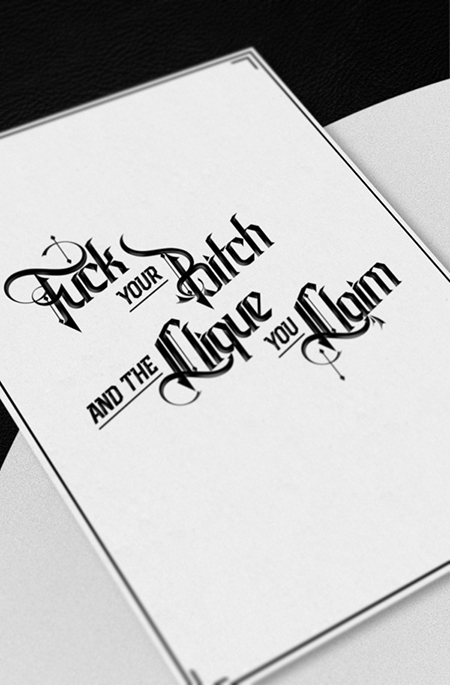 Fuck YOUR Bitch
AND THE Clique YOU Claim